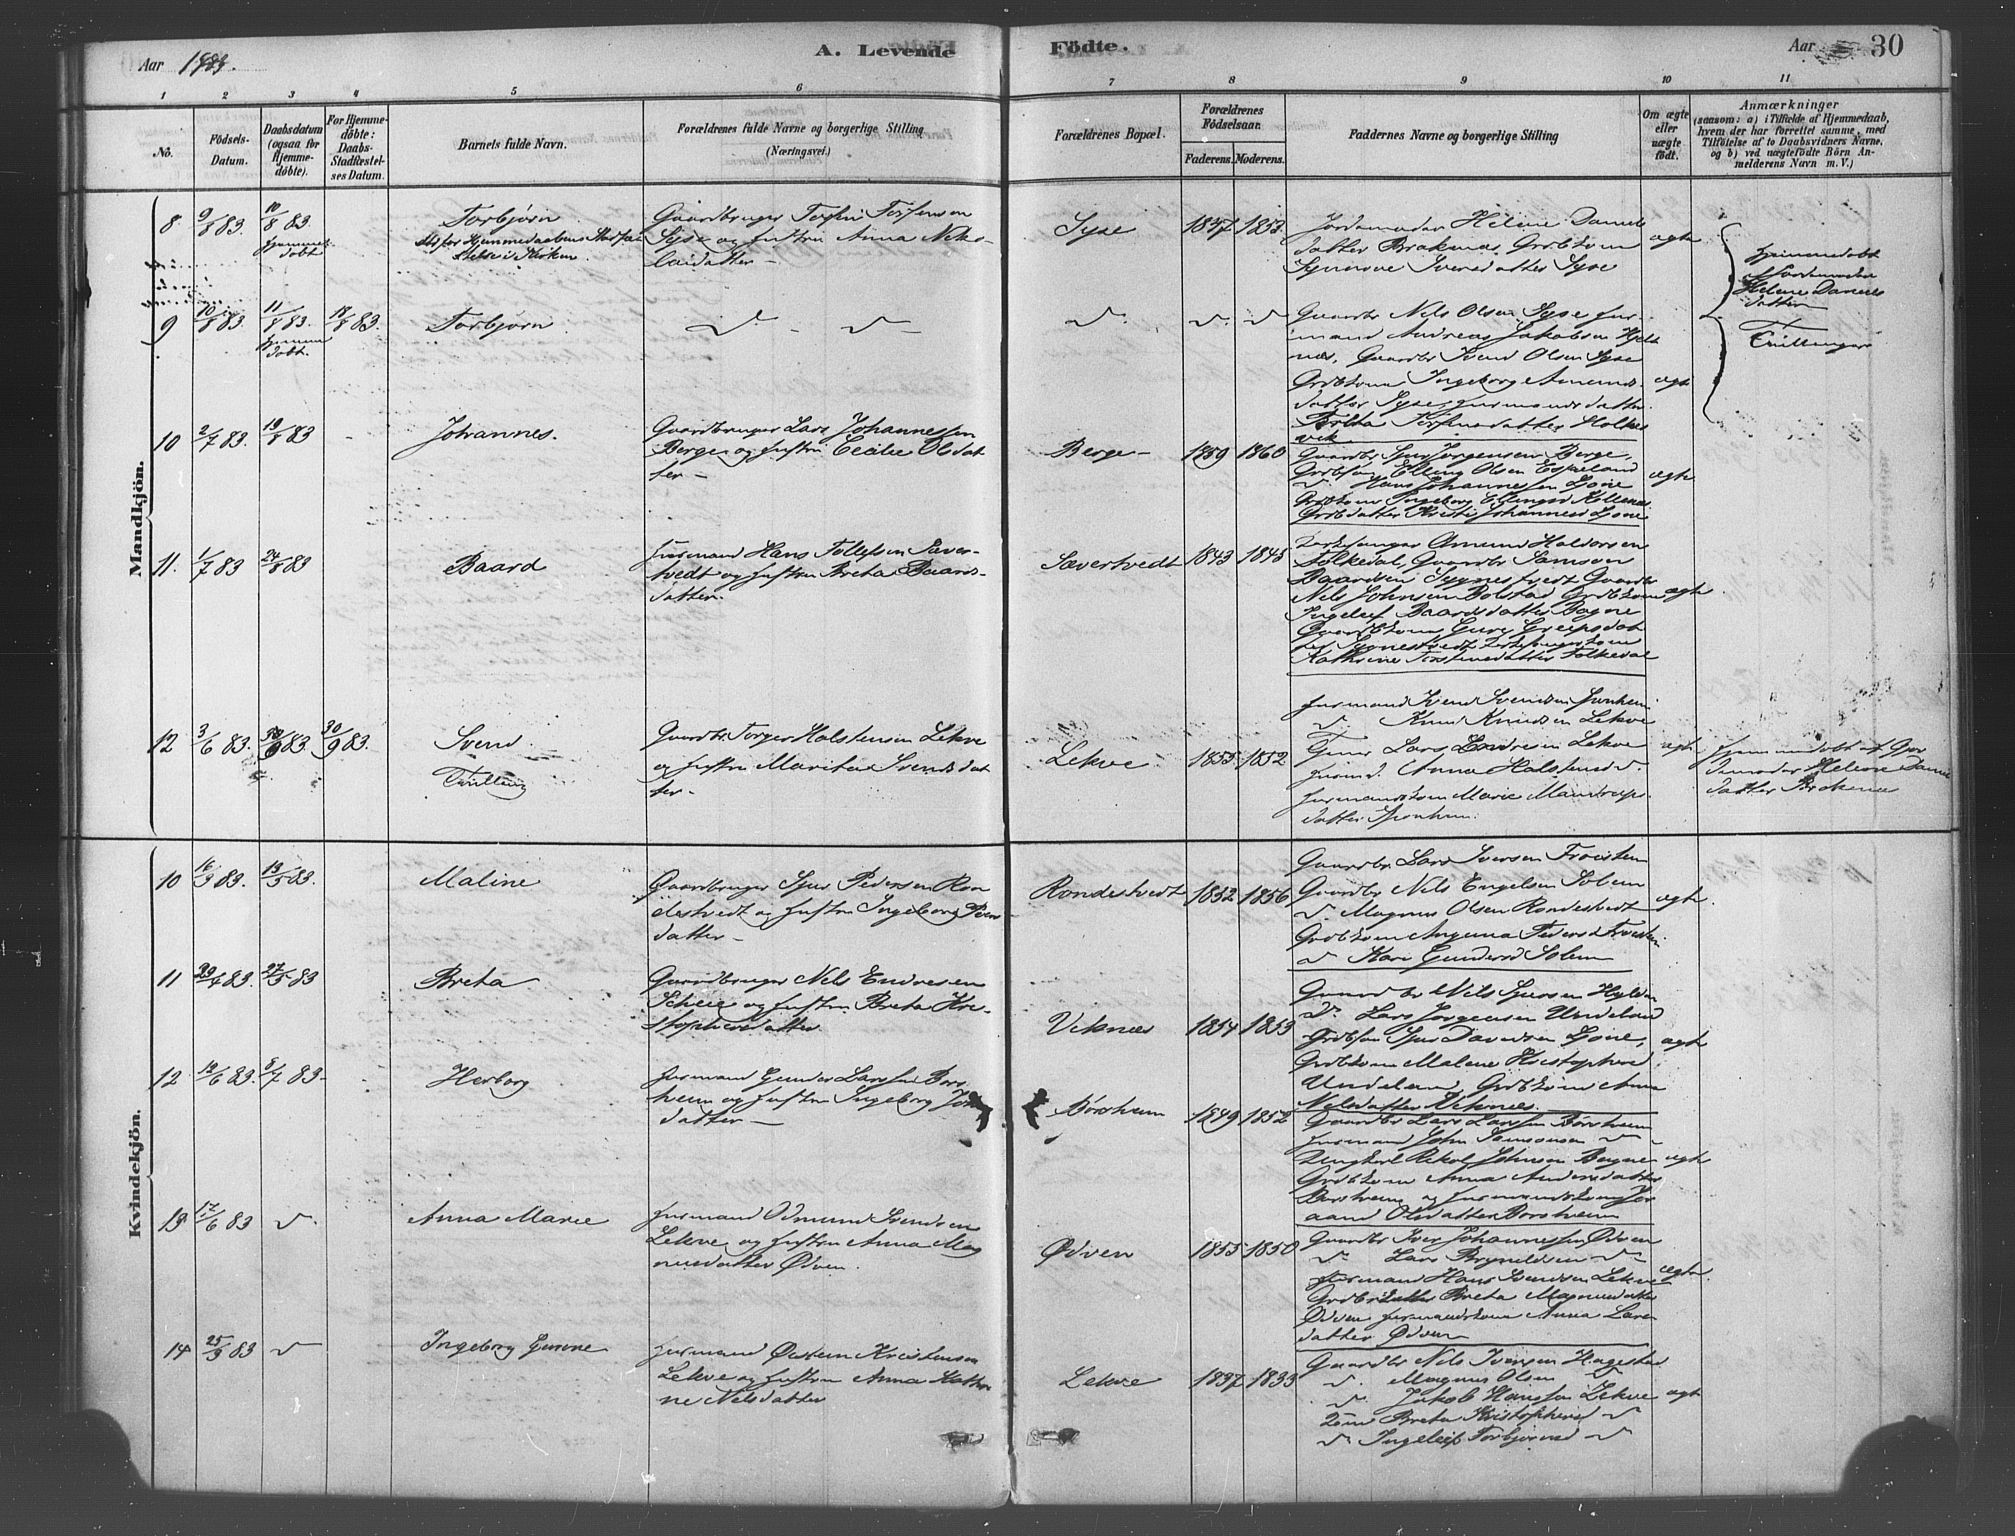 Aar 1883.
A. Levende
Födte.
Aar
30
1 2 3 4 5 6 7 8 9 10 11
No.
Födsels-
Datum.
Daabsdatum
(ogsaa for
Hjemme-
döbte).
For Hjemme-
döbte:
Daabs-
Stadfæstel-
ses Datum.
Barnets fulde Navn.
Forældrenes fulde Navne og borgerlige Stilling
(Næringsvei.)
Forældrenes Bopæl.
Forældrenes
Födselsaar.
Faderens. Moderens.
Faddernes Navne og borgerlige Stilling
Om ægte
eller
uægte
födt.
Anmærkninger
(saasom: a) i Tilfælde af Hjemmedaab,
hvem der har forrettet samme, med
Tilföielse af to Daabsvidners Navne,
og b) ved uægtefödte Börn An-
melderens Navn m. V.)
Mandkjön.
8 9/8 83. 10/8 83.
Hjemme
døbt
Torbjørn
Gaardbruger Torfin Torfinsen
Syse og hustru Anna Niko-
laidatter
Syse 1837 1853
Jordemoder Helene Daniels
datter Brakenæs, Grdbkone
Synnøve Iversdatter Syse
ægte
Hjemmedøbt
af Jordemoder
Helene Daniels
datter
Tvillinger
9 10/8 83. 11/8 83. 18/8 83.
Hjemme
døbt.
Torbjørn
Gaardbr Nils Olsen Syse hus-
mand Andreas Jakobsen Hjelt
næs, Gaardbr Svend Olsen Syse
Grdbkone Ingeborg Amunds
datter Syse, husmandsdatter
Brita Torfinsdatter Holkes
vik
ægte
10 2/7 83. 19/8 83
Johannes.
Gaardbruger Lars Johannessen
Berge og hustru Cecilie Olsdat
ter
Berge 1859 1860
Gaardbr Sjur Jørgensen Berge,
Grdbsøn Elling Olsen Espeland
Hans Johannessen Lione
Grdbkone Ingeborg Ellingsd
Grdbdatter Kristi Johannesd Lione
ægte
11. 1/7 83 24/8 83
Baard
Husmand Hans Tollefsen Sæver-
tvedt og hustru Breta Baards-
datter.
Sævertvedt 1843 1845
Kirkesanger Amund Haldorsen
Folkedal, Gaardbr Samson
Baardsen Sygnestvedt Gaardbr
Nils Johnsen Bolstad Grdbkone
Ingeleif Baardsdatter Bagne
Gaardbkone Guro Greipsdat
ter Sygnestvedt Kirkesangerkone
Kathrine Torstensdatter Folkedal
ægte
12 3/6 83. 30/9 83. 30/9 83.
Svend
Tvilling
Gaardbr Torger Halstensen Lekve
og hustru Marita Svendsdat
ter
Lekve 1855 1852
Husmand Svend Svendsen Sponheim
Knud Knudsen Lekve
Tjener Lars Endresen Lekve
Anna Halstensd
husmandskone Marie Mandrups
datter Sponheim
ægte
Hjemmedøbt af Jor
demoder Helene Daniels
datter Brakenæs
Kvindekjön.
10 16/3 83. 13/5 83.
Maline
Gaardbruger Sjur Pedersen Ron
destvedt og hustru Ingeborg Peders
datter
Rondestvedt 1852 1856
Gaardbr Lars Iversen Troisten
Gaardbr Nils Engelsen Solem
Magnus Olsen Rondestvedt
Grdbkone Angunna Pedersd Troisten
Kari Gundersd Solem
ægte.
11 29/4 83. 27/5 83
Breta
Gaardbruger Nils Endresen
og hustru Breta Kri-
stophersdatter
Viknæs 1854 1853
Gaardbr Nils Sjursen Hylden
Lars Jørgensen Undeland
Grdbsøn Sjur Davidsen Lione,
Grdbkone Malene Kristophersd
Undeland, Grdbkone Anna
Nilsdatter Viknæs.
ægte
12 12/6 83. 8/7 83
Herborg
Husmand Gunder Larssen Børs
heim og hustru Ingeborg
datter
Børsheim 1849 1852
Gaardbr Lars Larsen Børsheim
Husmand John Samsonsen
Ungkarl Rikol Johnsen Bagne
Grdbkone Anna Andersdatter
Børsheim og husmandskone Jo-
raand Olsdatter Børsheim
ægte
13 17/6 83
Anna Marie
Husmand Odmund Svendsen
Lekve og hustru Anna Mag
nusdatter Ødven.
Ødven 1855 1850
Gaardbr Iver Johannessen Ødven
Lars Brynildsen
Husmand Hans Svendsen Lekve
Grdbrdatter Breta Magnusdatter
Ødven, husmandskone Anna Lars
datter Ødven
ægte.
14 25/3 83
Ingeborg Gurine
Husmand Øistein Kristensen
Lekve og hustru Anna Kathri
ne Nilsdatter
Lekve 1837 1833
Gaardbr Nils Iversen Hagestad
Magnus Olsen
Jakob Hanssen Lekve
Kone Breta Kristophersd
Ingeleif Torbjørnsd
ægte